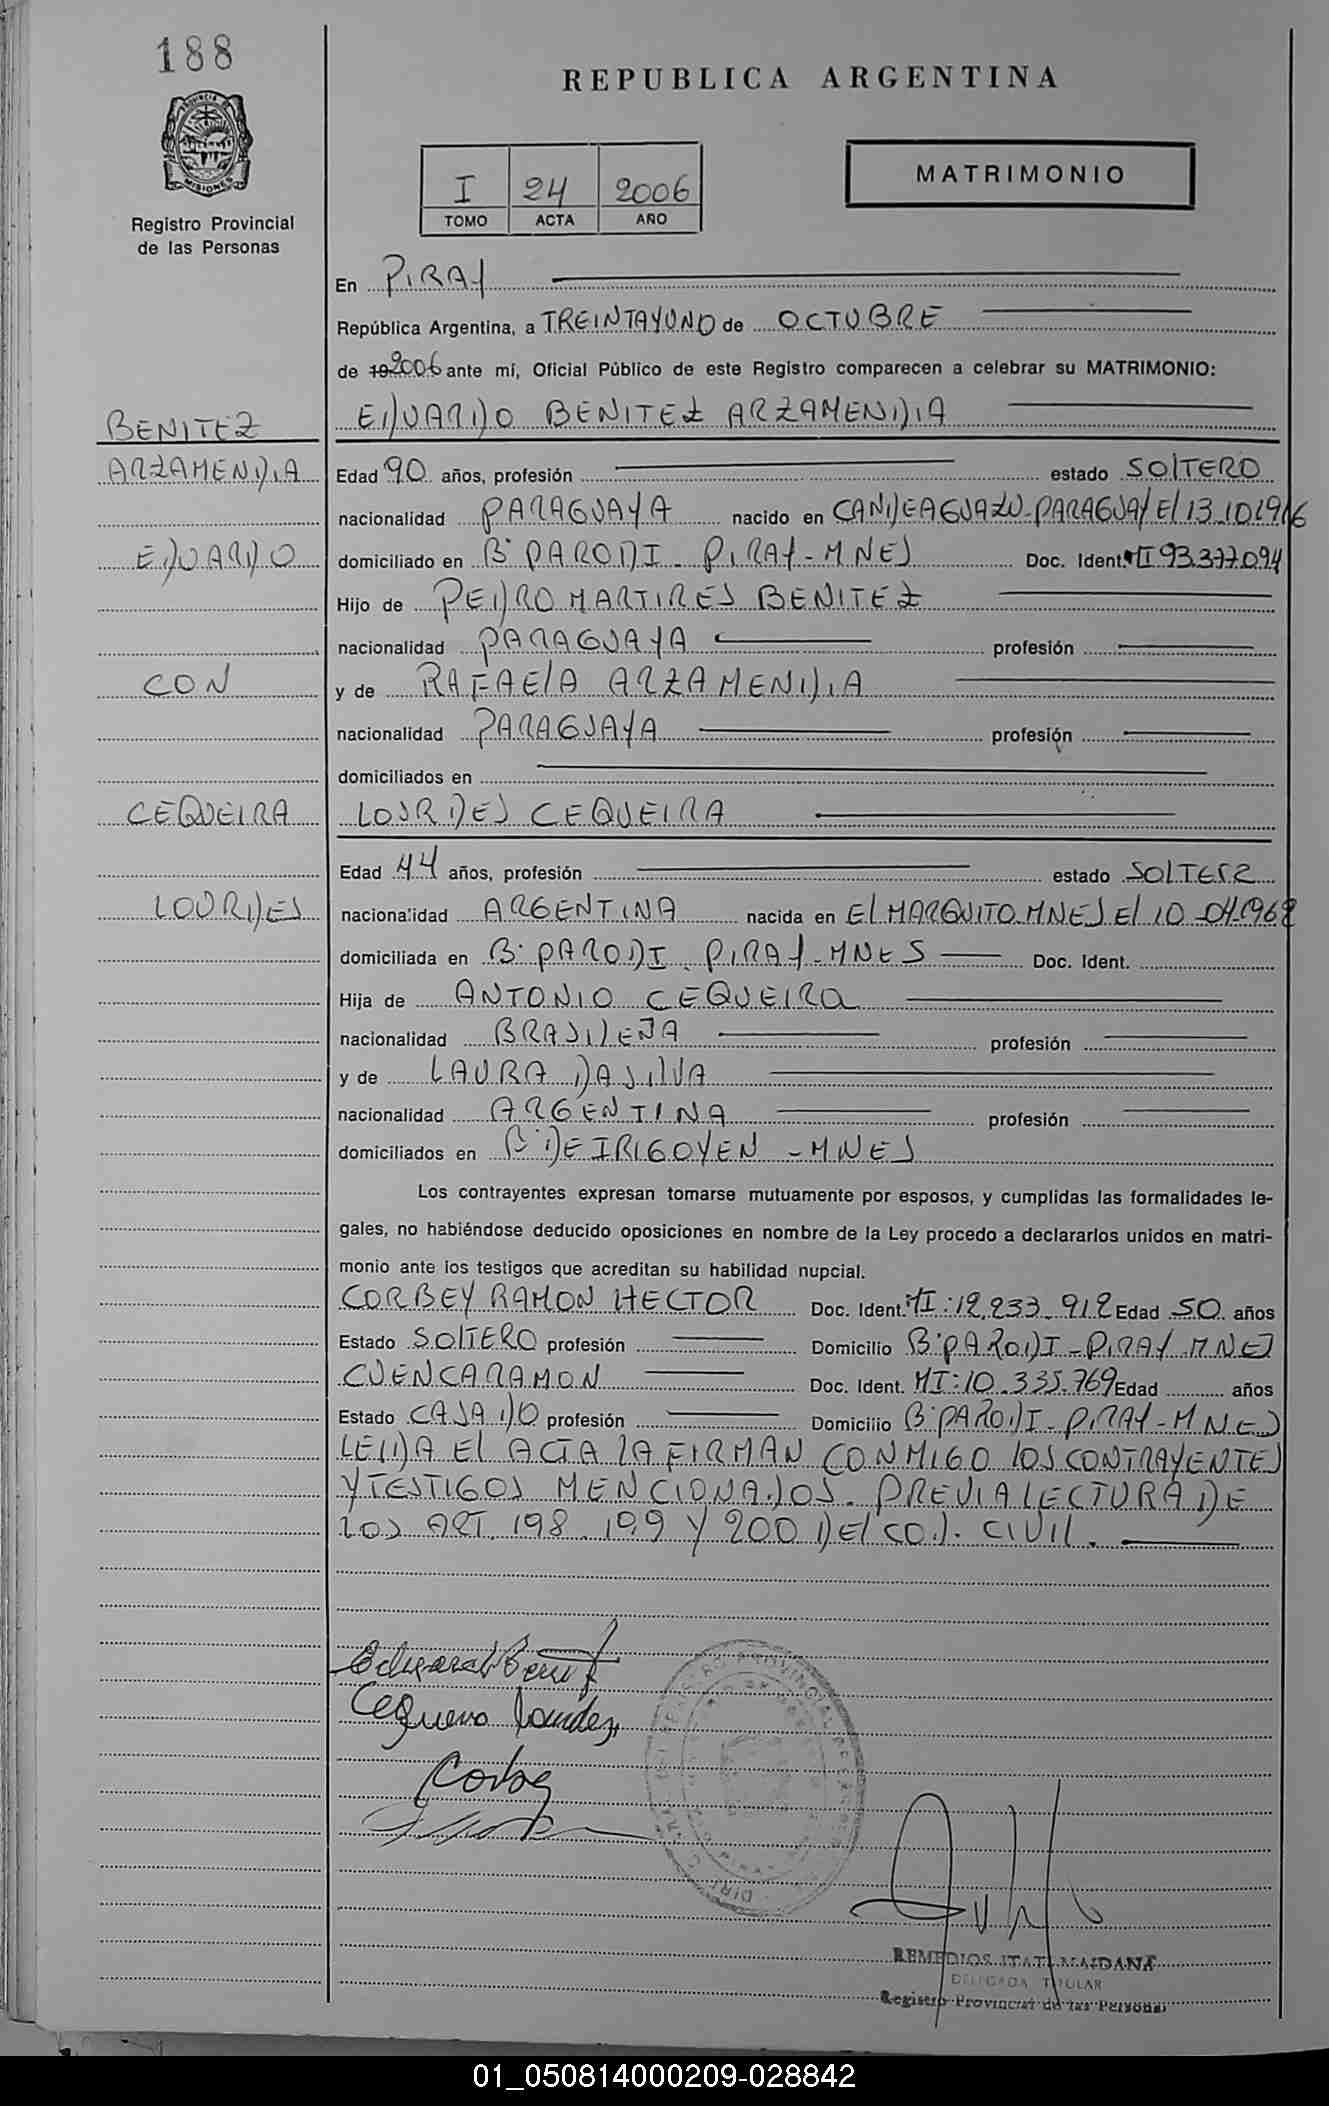 188
REPUBLICA ARGENTINA
MISIONES
Registro Provincial
de las Personas
I 24 2006
TOMO ACTA AÑO
MATRIMONIO
En PIRAY
República Argentina, a TREINTAYUNO de OCTUBRE
de 19 2006 ante mí, Oficial Público de este Registro comparecen a celebrar su MATRIMONIO:
BENITEZ
EDUARDO BENITEZ ARZAMENDIA
ARZAMENDIA
Edad 90 años, profesión estado SOLTERO
nacionalidad PARAGUAYA nacido en CANDEAGUAZU-PARAGUAY El 13.10.1916
EDUARDO
domiciliado en B° PARODI - PIRAY - MNES Doc. Ident. MI 93.377.094
Hijo de PEDRO MARTIRES BENITEZ
nacionalidad PARAGUAYA profesión
CON
y de RAFAELA ARZAMENDIA
nacionalidad PARAGUAYA profesión
domiciliados en
CEQUEIRA
LOURDES CEQUEIRA
Edad 44 años, profesión estado SOLTERA
LOURDES
nacionalidad ARGENTINA nacida en El MARQUITO-MNES El 10-04-1962
domiciliada en B° PARODI - PIRAY - MNES Doc. Ident.
Hija de ANTONIO CEQUEIRA
nacionalidad BRASILEÑA profesión
y de LAURA DA SILVA
nacionalidad ARGENTINA profesión
domiciliados en B° DE IRIGOYEN - MNES
Los contrayentes expresan tomarse mutuamente por esposos, y cumplidas las formalidades le-
gales, no habiéndose deducido oposiciones en nombre de la Ley procedo a declararlos unidos en matri-
monio ante los testigos que acreditan su habilidad nupcial.
CORBEY RAMON HECTOR Doc. Ident. MI: 12.233.912 Edad 50 años
Estado SOLTERO profesión Domicilio B° PARODI - PIRAY - MNES
CUENCA RAMON Doc. Ident. MI: 10.335.769 Edad años
Estado CASADO profesión Domicilio B° PARODI - PIRAY - MNES
LEIDA El ACTA LA FIRMAN CONMIGO LOS CONTRAYENTES
Y TESTIGOS MENCIONADOS. PREVIA LECTURA DE
LOS ART. 198. 199 Y 200 DEL COD. CIVIL.
Cequeira Lourdes
Corbey
REMEDIOS ITATI MAIDANA
DELEGADA TITULAR
Registro Provincial de las Personas
01_050814000209-028842